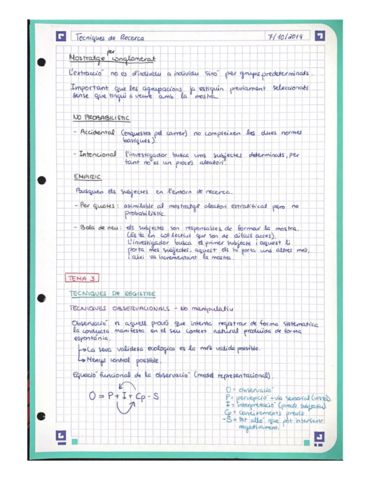 Tecniques de Recerca 7/10/2019
Mostratge per conglomerat
L'extracció no es d'individu a individu sinó per grups predeterminats.
Important que les agrupacions ja estiguin previament seleccionats
sense que tingui a veure amb la mostra.
NO PROBABILISTIC
- Accidental (enquestes pel carrer) no compleixen les dues normes
bàsiques).
- Intencional l'investigador busca uns subjectes determinats, per
tant no es un procés aleatori.
Busquen els subjectes en l'entorn de recerca.
- Per quotes: asimilable al mostratge aleatori estratificat pero no
probabilistic.
- Bola de neu: els subjectes son responsables de formar la mostra.
(es fa en col·lectius que son de difícil accés).
L'investigador busca el primer subjecte i aquest li
porta més subjectes, aquest els hi porta uns altres més,
i així va incrementant la mostra.
TEMA 3
TECNIQUES DE REGISTRE
TECNIQUES OBSERVACIONALS - No manipulatiu
Observació es aquell procés que intenta registrar de forma sistematica
la conducta manifesta en el seu context natural produida de forma
espontània.
↳ La seva validesa ecologica es la més valida possible.
↳ Menys control possible.
Equació funcional de la observació (model representacional).
O = P + I + Cp - S
O = observació
P = percepció - via sensorial
I = interpretació
Cp = coneixements previs
-S = Tot allò que pot intervenir